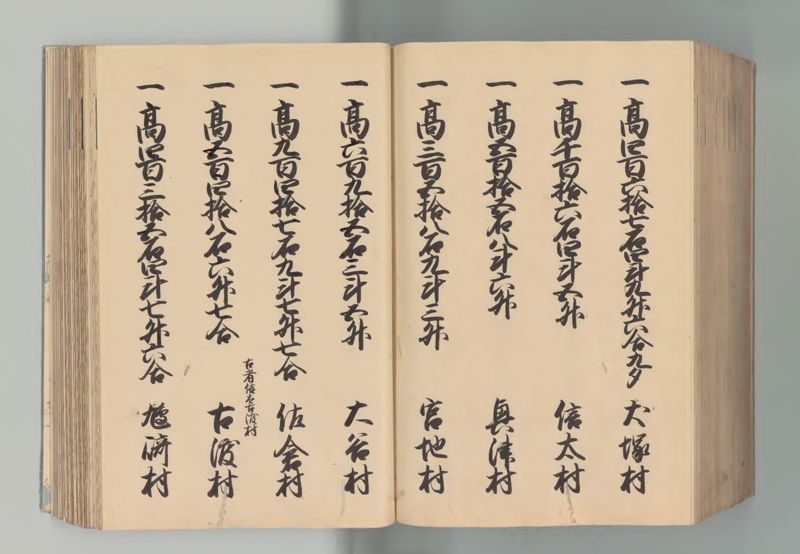 一 高四百六拾七石四斗九升六合九夕 大塚村
一 高千百拾六石四斗五升 信太村
一 高五百拾五石八斗六升 興津村
一 高三百五拾八石九斗三升 宮地村
一 高六百九拾五石三斗五升 大谷村
一 高九百四拾七石九斗七升七合 佐倉村
古者信太古渡村
一 高五百四拾八石六升七合 古渡村
一 高四百三拾五石四斗七升六合 村